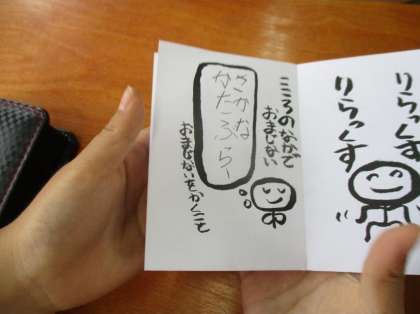 りらっくす
りらっくす
こころのなかで
おまじない
さかな
かたぶらー
おまじないをかくこと